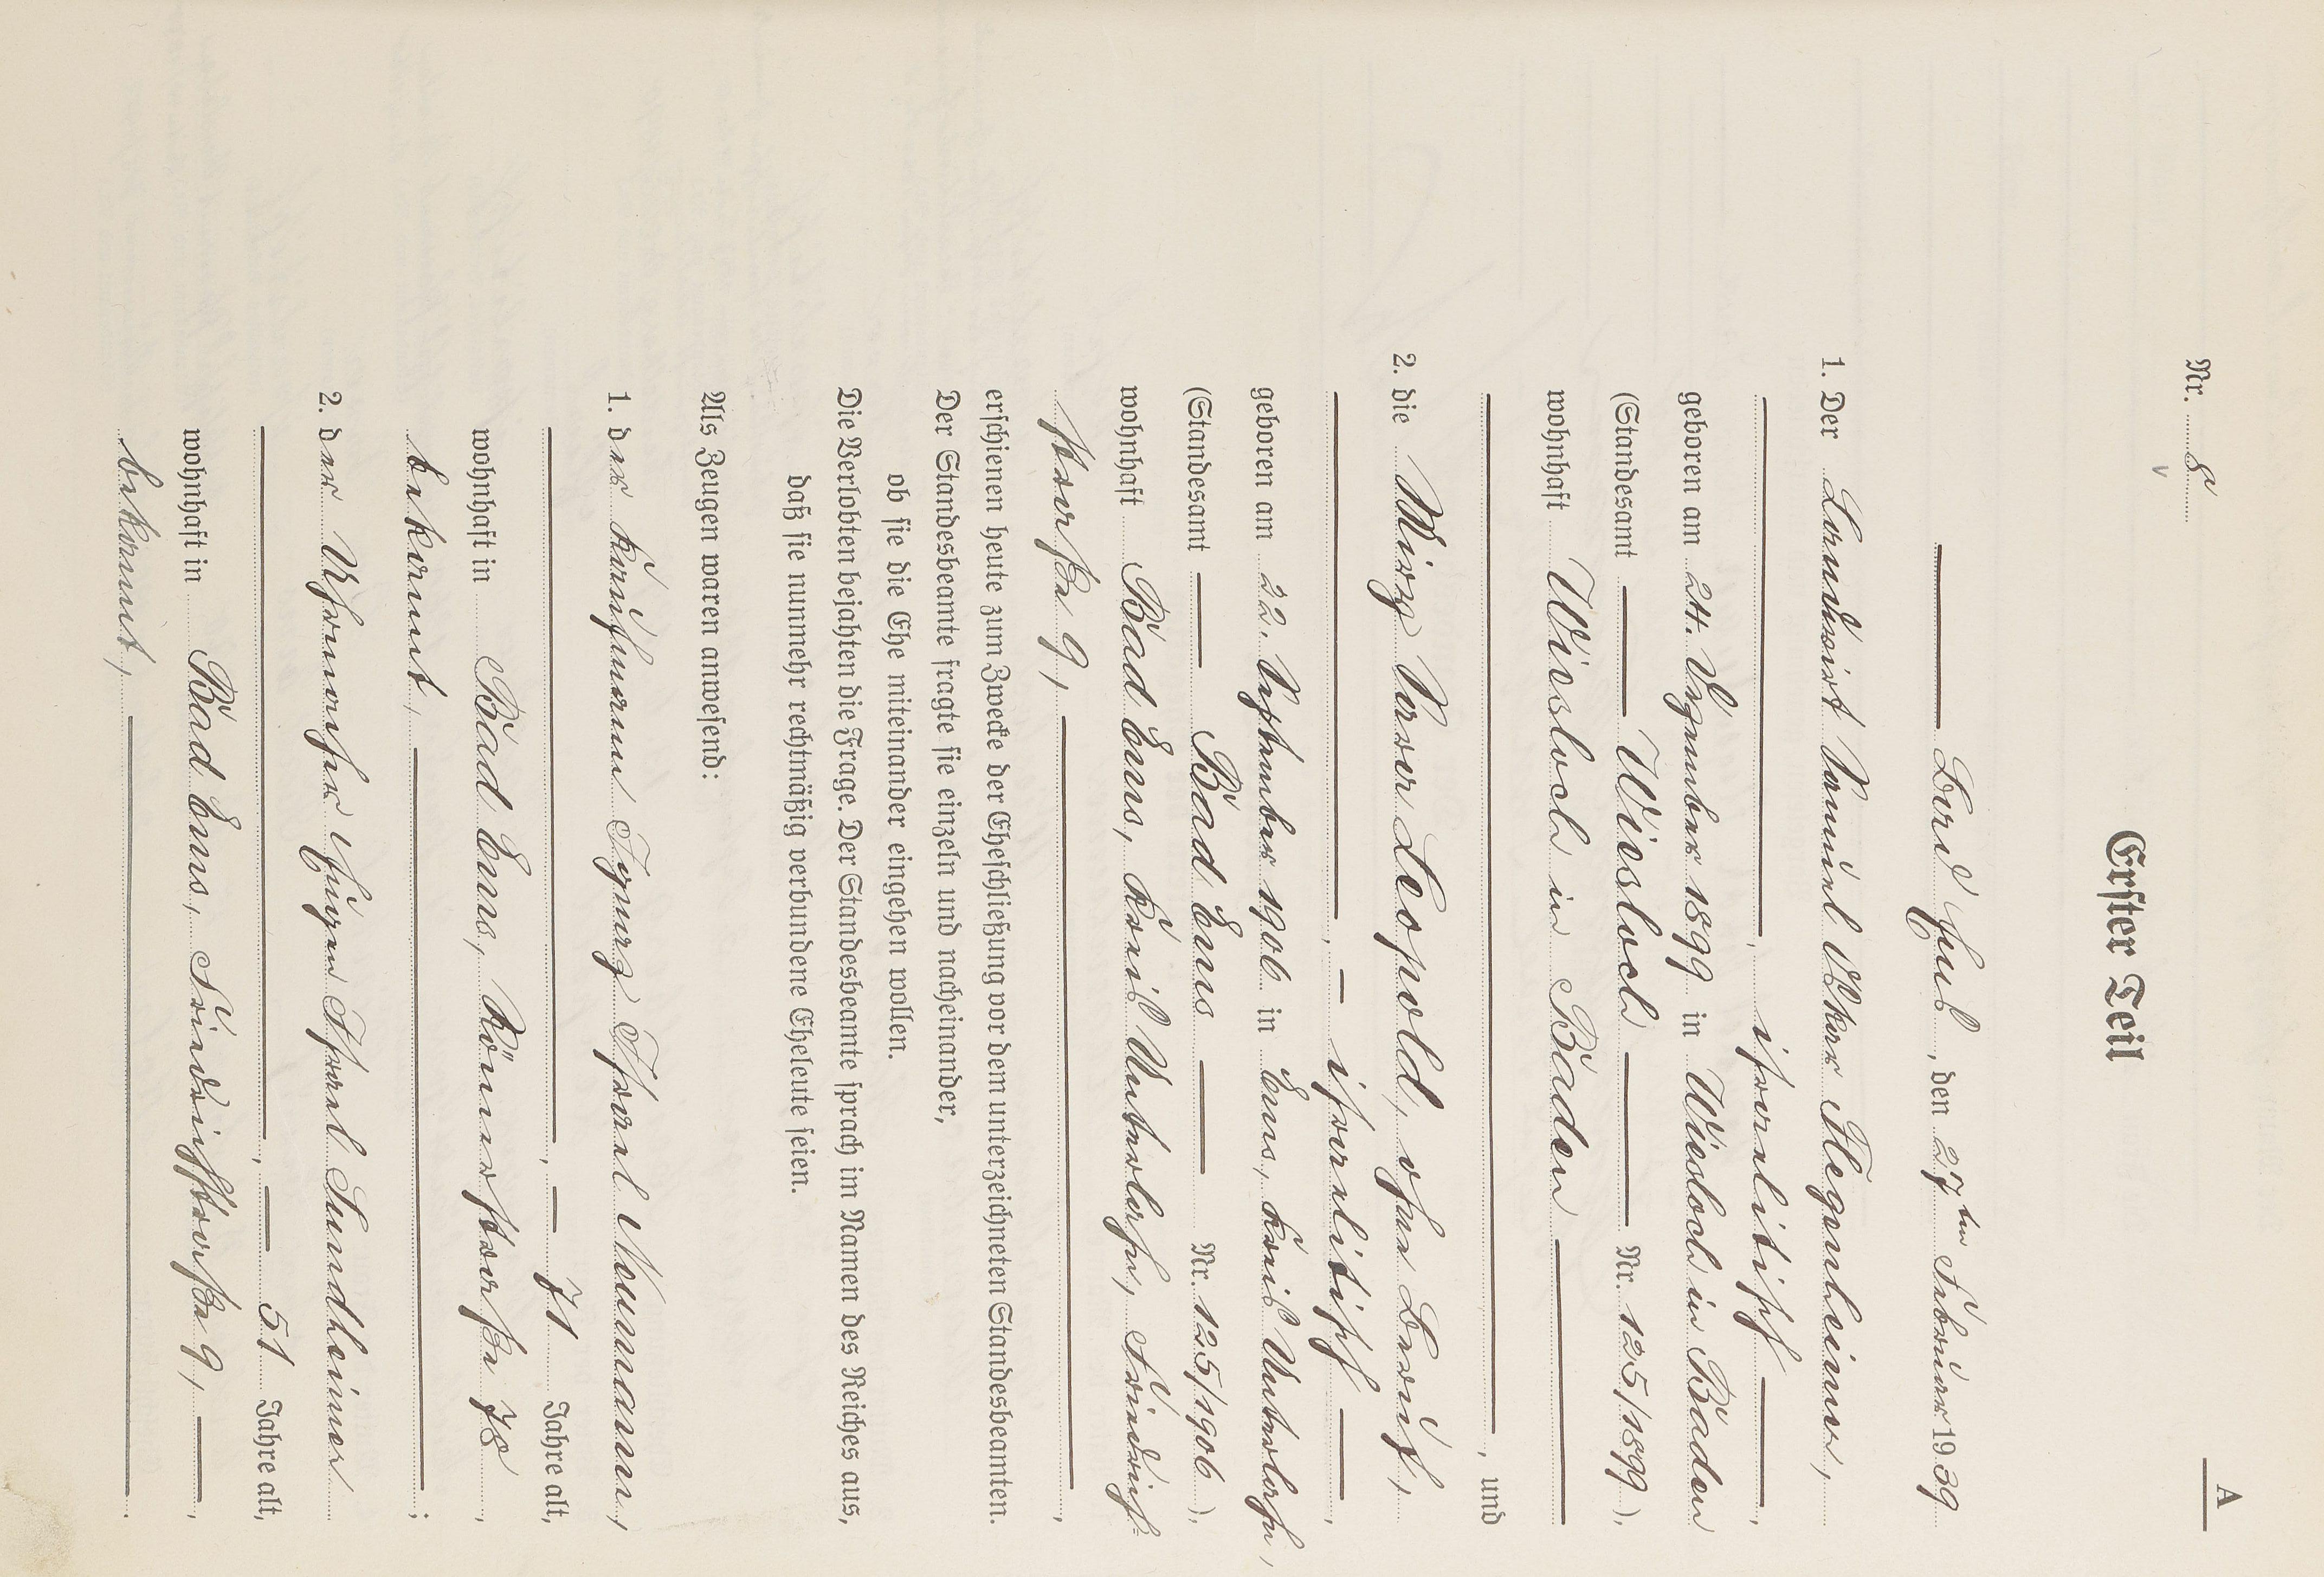 A
Nr. 8
Erster Teil
Bad Ems, den 27ten Februar 1939
1. Der Landwirt Samuel Oskar Flegenheimer,
israelitisch,
geboren am 24. Dezember 1899 in Wiesloch in Baden
(Standesamt Wiesloch Nr. 125/1899),
wohnhaft Wiesloch in Baden
, und
2. die Mirza Sara Leopold, ohne Beruf,
, israelitisch,
geboren am 22. September 1906 in Ems, Kreis Unterlahn,
(Standesamt Bad Ems Nr. 125/1906),
wohnhaft Bad Ems, Kreis Unterlahn, Friedrich-
straße 9,
erschienen heute zum Zwecke der Eheschließung vor dem unterzeichneten Standesbeamten.
Der Standesbeamte fragte sie einzeln und nacheinander,
ob sie die Ehe miteinander eingehen wollen.
Die Verlobten bejahten die Frage. Der Standesbeamte sprach im Namen des Reiches aus,
daß sie nunmehr rechtmäßig verbundene Eheleute seien.
Als Zeugen waren anwesend:
1. der Kaufmann Ignaz Israel Naumann,
, 71 Jahre alt,
wohnhaft in Bad Ems, Römerstraße 78,
bekannt,;
2. der Uhrmacher Hugo Israel Sundheimer
, 51 Jahre alt,
wohnhaft in Bad Ems, Friedrichstraße 9,
bekannt,.